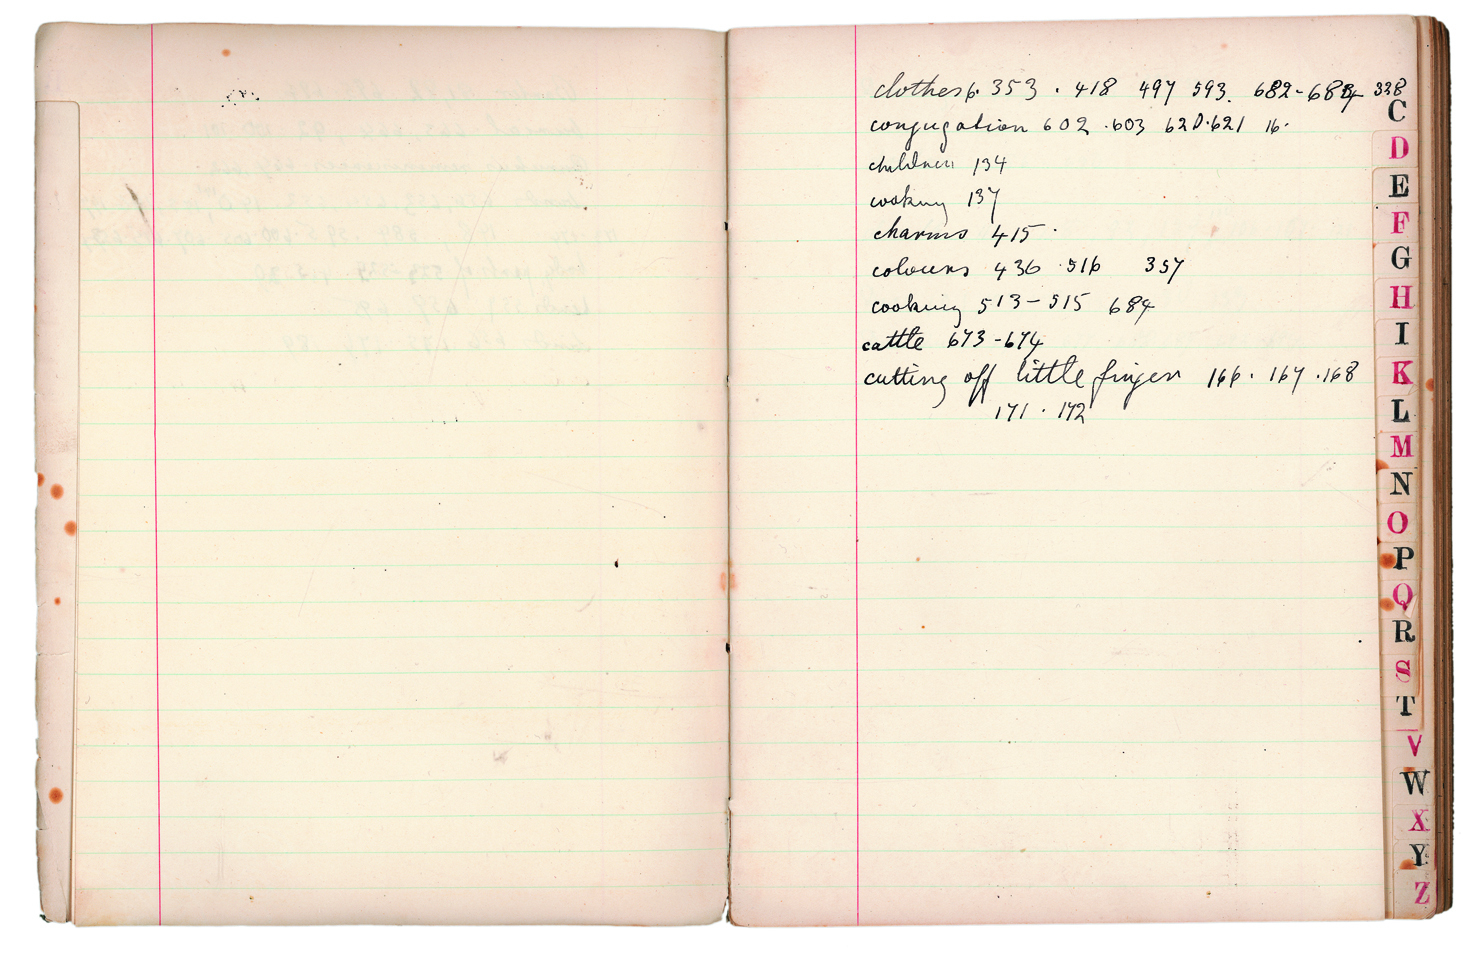 clothes 6. 353 . 418 497 593. 682-684 328
conjugation 602 .603 620.621 16.
children 134
cooking 137
charms 415.
colours 436 .516 357
cooking 513-515 684
cattle 673-674
cutting off little finger 166. 167 .168
171 . 172
C
D
E
F
G
H
I
K
L
M
N
O
P
Q
R
S
T
V
W
X
Y
Z